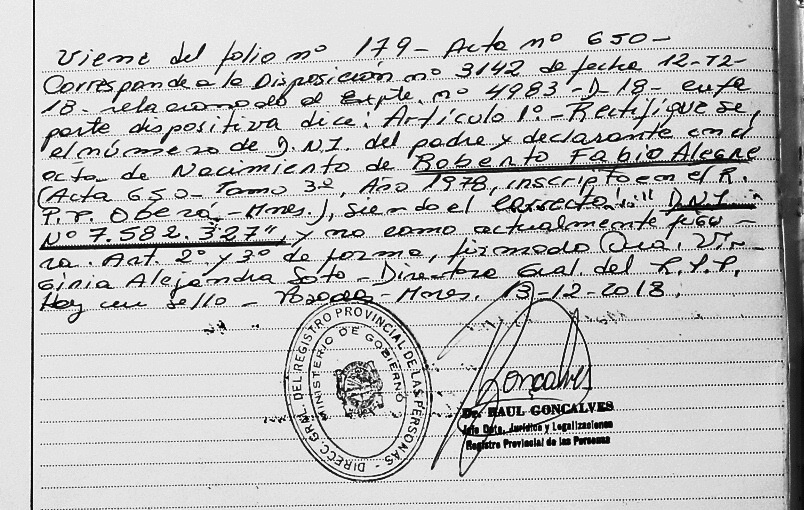 Viene del folio nº 179 - Acta nº 650 -
Corresponde a la Disposición nº 3142 de fecha 12-12-
18 - relacionado al Expte. nº 4983 - D - 18 - en la
parte dispositiva dice: Artículo 1º - Rectifíquese,
el número de D.N.I. del padre y declarante en el
acta de Nacimiento de Roberto Fabio Alegre
(Acta 650 - Tomo 3º, Año 1978, inscripto en el R.
P.P. Oberá - Mnes.), siendo el correcto: " D.N.I.
Nº 7.582.327", y no como actualmente figu-
ra. Art. 2º y 3º de forma, firmado Dra. Vir-
ginia Alejandra Soto - Directora Gral. del R.P.P.
Hay un sello - Posadas - Mnes. 13-12-2018.
DIRECC. GRAL. DEL REGISTRO PROVINCIAL DE LAS PERSONAS -
MINISTERIO DE GOBIERNO
Gonçalves
Dr. RAUL GONCALVES
Jefe Dpto. Jurídico y Legalizaciones
Registro Provincial de las Personas